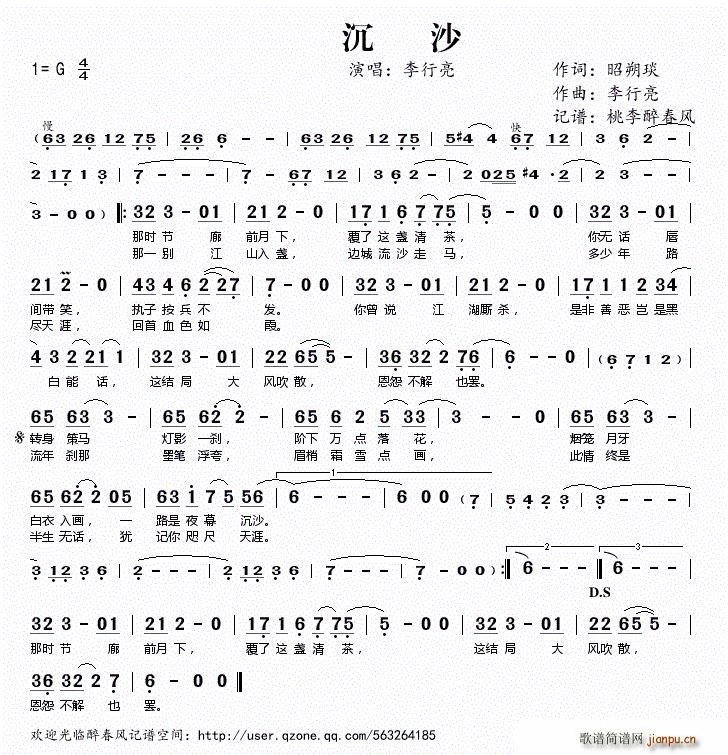 沉 沙
1=G 4/4 演唱：李行亮 作词：昭朔琰
作曲：李行亮
记谱：桃李醉春风
慢 快
(63 26 12 75 | 26 6 - - | 63 26 12 75 | 5#4 4 - 67 12 | 3 6 2 - |
2 17 1 3 | 7 - - - | 7 - 67 12 | 2 025 #4 · 2 | 2 3 - - |
3 - 00) ‖: 32 3 - 01 | 21 2 - 0 | 17 1 6 7 75 | 5 - 0 0 | 32 3 - 01 |
那时 节 廊 前月 下， 覆了 这 盏 清 茶， 你无 话 唇
那一 别 江 山入 盏， 边城 流 沙 走 马， 多少 年 路
21 2 - 0 | 43 4 6 2 27 | 7 - 0 0 | 32 3 - 01 | 21 2 - 0 | 17 1 2 3 34 |
间带 笑， 执子 按 兵 不 发。 你曾 说 江 湖厮 杀， 是非 善 恶 岂 是黑
尽天 涯， 回首 血 色 如 霞。
4 3 2 21 1 | 32 3 - 01 | 22 65 5 - | 36 32 2 76 | 6 - - 0 | (6 7 1 2) |
白 能 话， 这结 局 大 风吹 散， 恩怨 不解 也罢。
65 63 3 - | 65 62 2 - | 65 6 2 5 33 | 3 - - 0 | 65 63 3 - |
转身 策马 灯影 一刹， 阶下 万 点 落 花， 烟笼 月牙
流年 刹那 墨笔 浮夸， 眉梢 霜 雪 点 画， 此情 终是
1
65 62 2 05 | 63 1 75 56 | 6 - - - | 6 00 (7 | 5 42 2 3 | 3 - - - |
白衣 入画， 一 路是 夜 幕 沉沙。
半生 无话， 犹 记你 咫 尺 天涯。
2 3
3 12 3 6 | 3 12 3 6 | 3 12 3 7 | 7 - - - | 7 - 00) :‖ 6 - - :‖ 6 - - |
D.S
32 3 - 01 | 21 2 - 0 | 17 1 6 7 75 | 5 - 0 0 | 32 3 - 01 | 22 65 5 - |
那时 节 廊 前月 下， 覆了 这 盏 清 茶， 这结 局 大 风吹 散，
36 32 2 7 | 6 - - 0 ‖
恩怨 不解 也 罢。
欢迎光临醉春风记谱空间：http://user.qzone.qq.com/563264185
歌谱简谱网
jianpu.cn